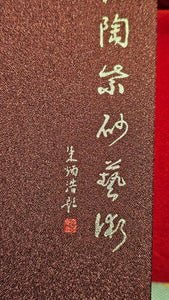 陶紫砂藝術
朱炳浩題